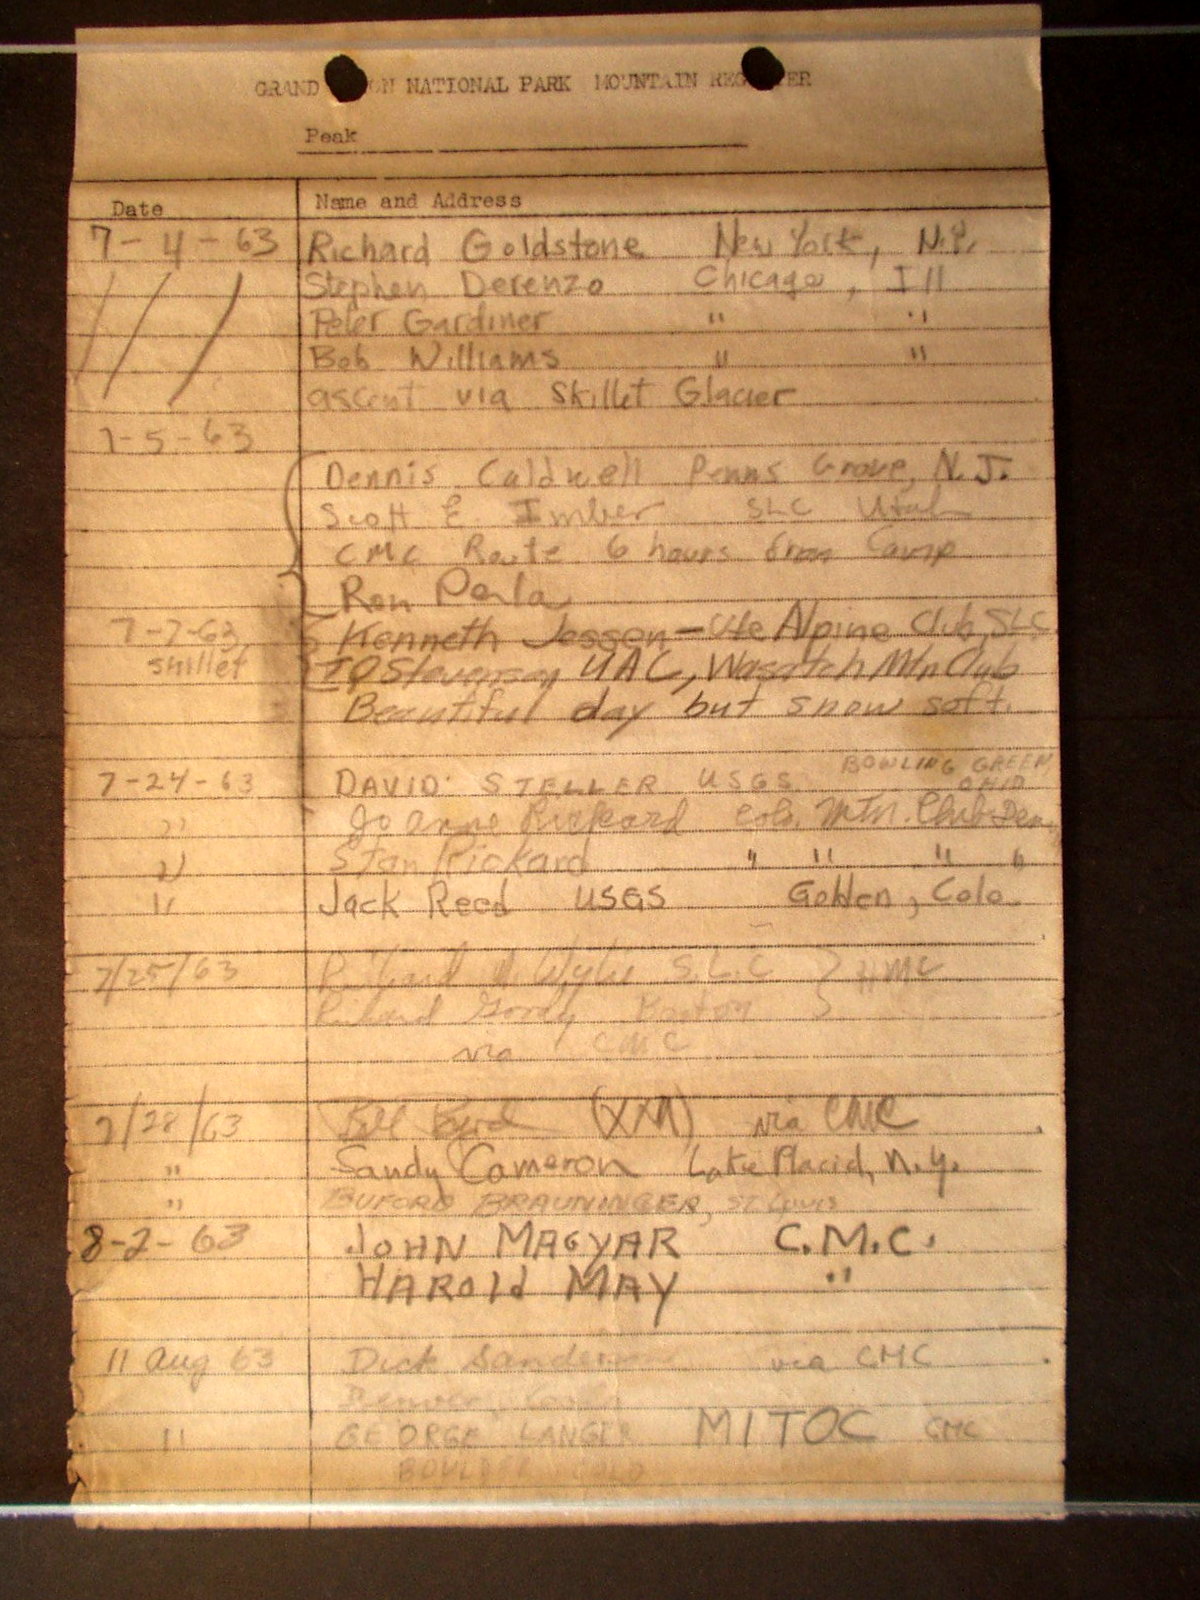 GRAND ON NATIONAL PARK MOUNTAIN REG TER
Peak
Date Name and Address
7-4-63 Richard Goldstone New York, N.Y.
Stephen Derenzo Chicago, Ill
Peter Gardiner " "
Bob Williams " "
ascent via Skillet Glacier
7-5-63
Dennis Caldwell Penns Grove, N.J.
Scott E. Imber SLC Utah
CMC Route 6 hours from Camp
Ron Perla
7-7-63 Kenneth Jessen - Ute Alpine Club, SLC
Skillet Stevenson UAC, Wasatch Mtn Club
Beautiful day but snow soft.
7-24-63 DAVID STELLER USGS BOWLING GREEN
OHIO
" Joanne Rickard Colo. Mtn. Club Den.
" Stan Rickard " " " "
" Jack Reed USGS Golden, Colo
7/25/63 Richard Wylie S.L.C } HMC
Richard Goody Boston
via CMC
7/28/63 Bill Byrd via CMC
" Sandy Cameron Lake Placid, N.Y.
" BUFORD BRAUNINGER, St Louis
8-2-63 JOHN MAGYAR C.M.C.
HAROLD MAY "
11 Aug 63 Dick via CMC
Denver, Colo
" GEORGE LANGER MITOC CMC
BOULDER COLO